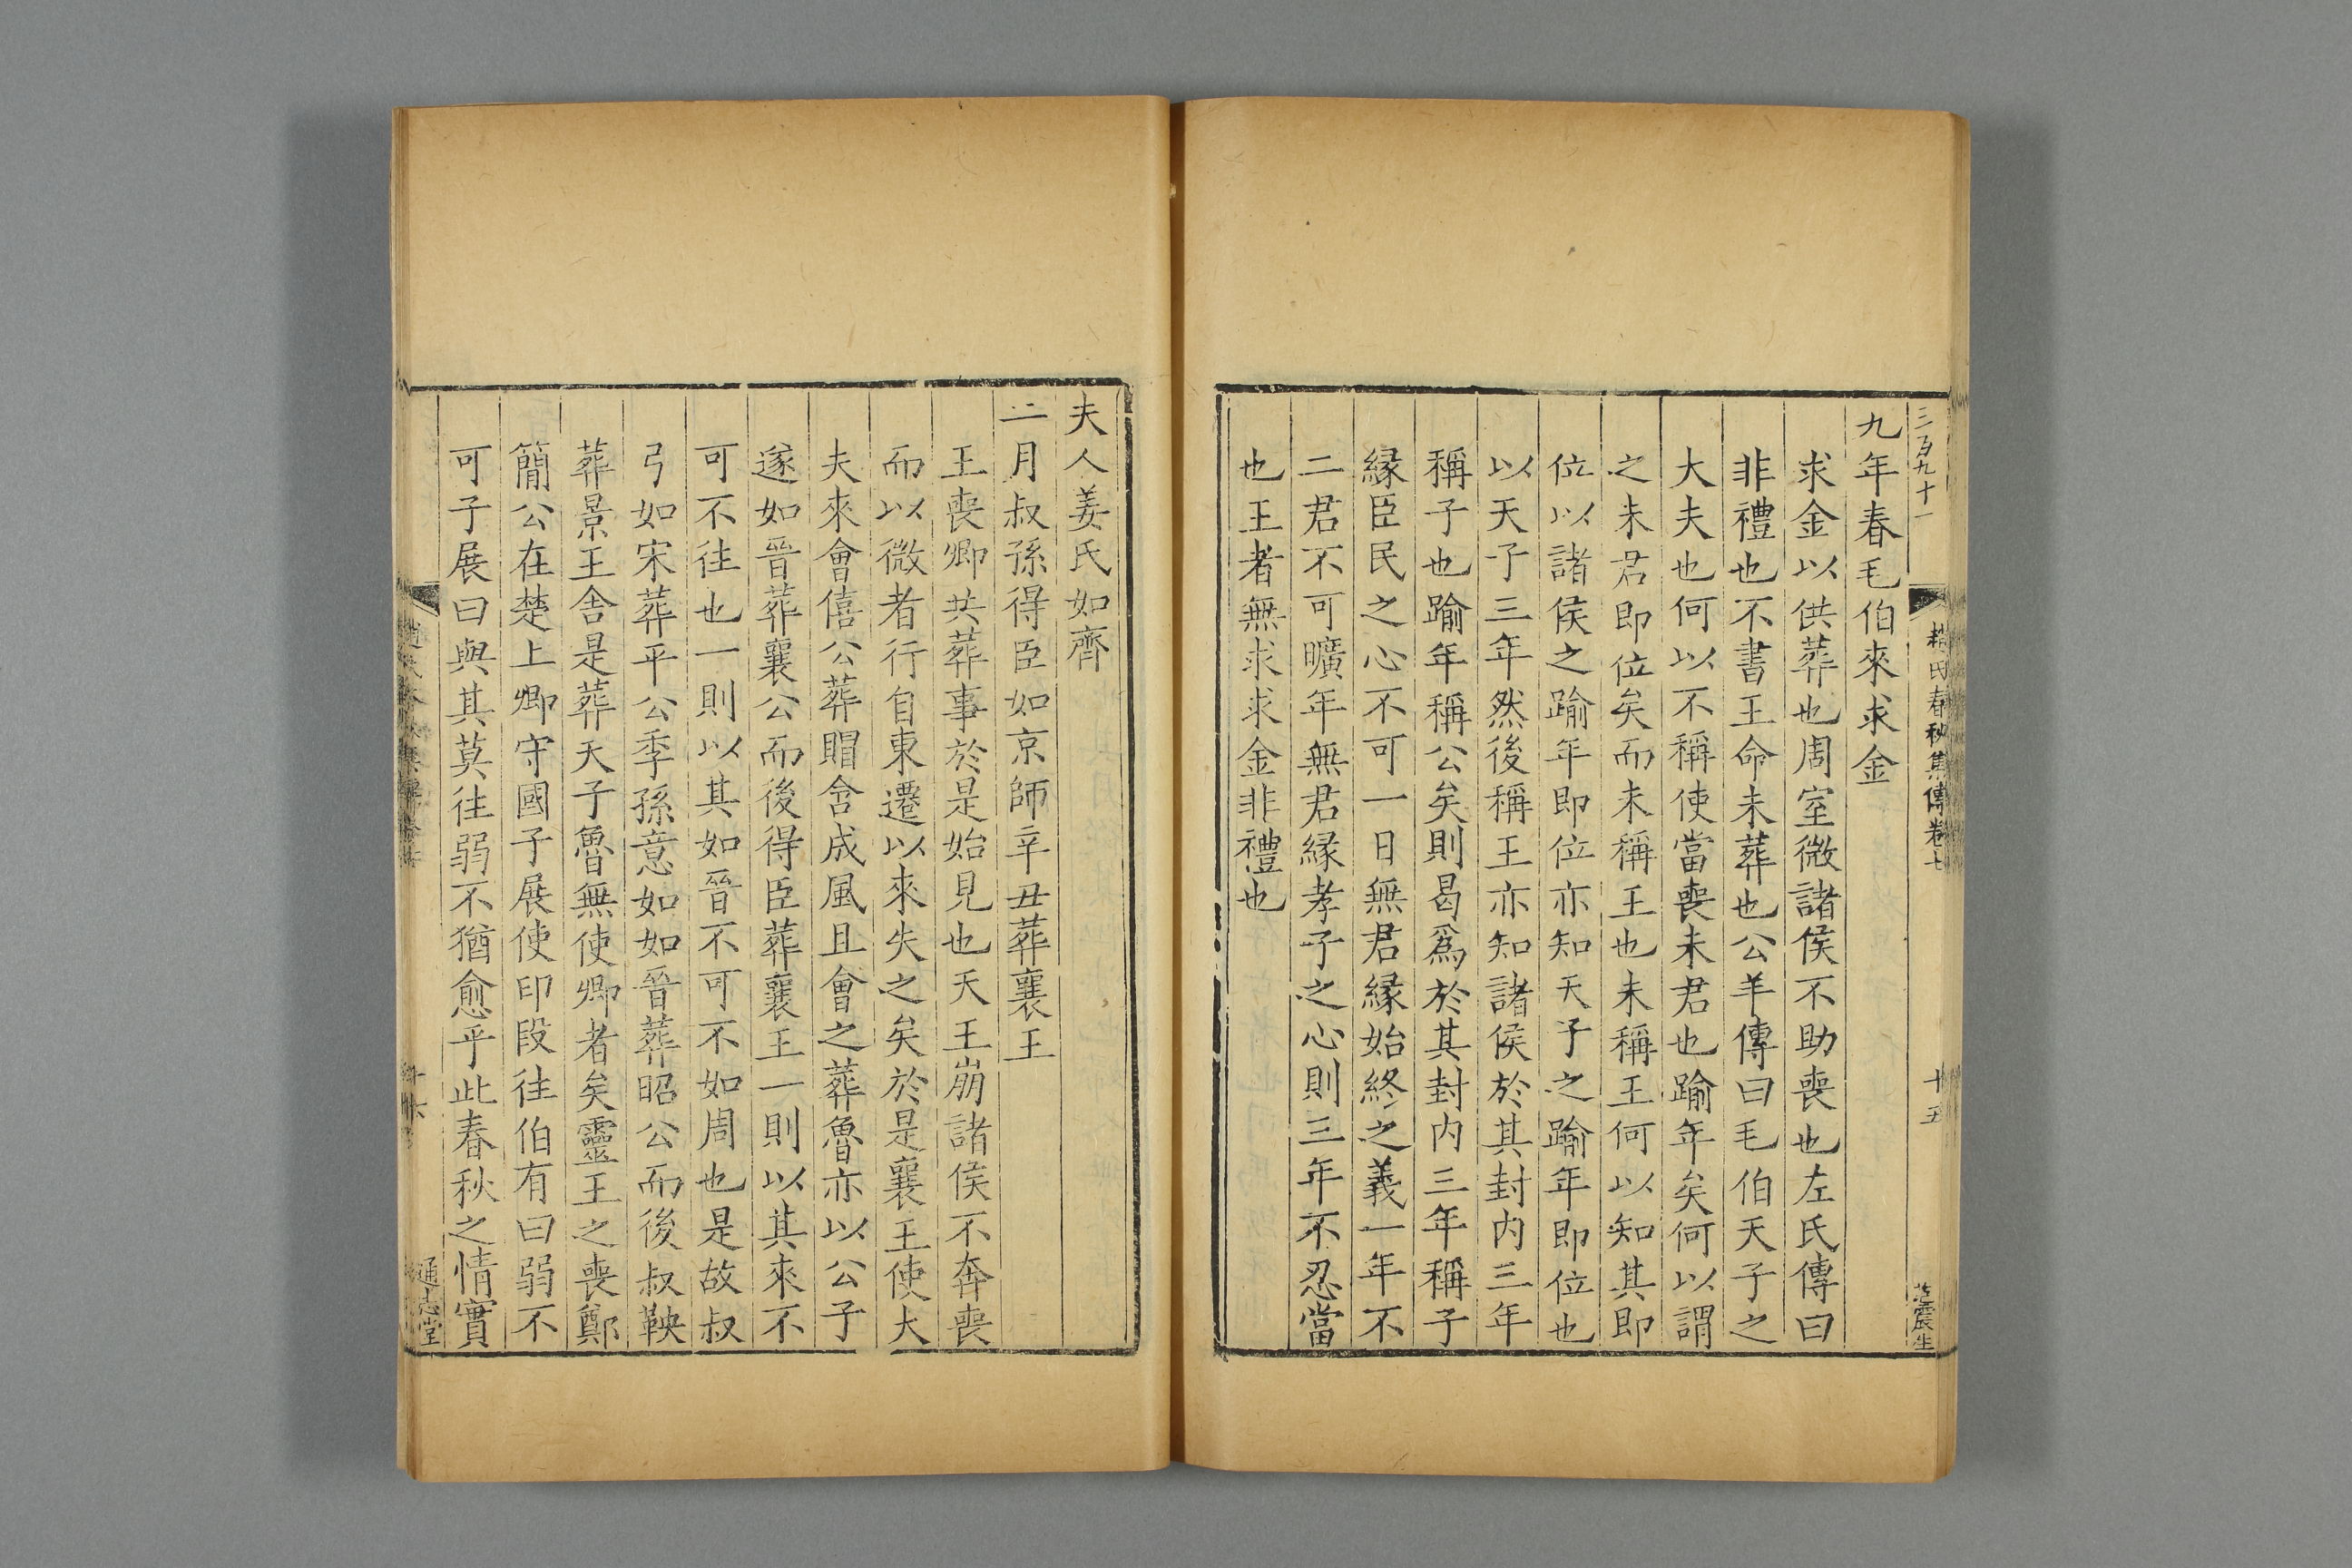 三百九十一
趙氏春秋集傳卷七
十五
震生
九年春毛伯來求金
求金以供葬也周室微諸侯不助喪也左氏傳曰
非禮也不書王命未葬也公羊傳曰毛伯天子之
大夫也何以不稱使當喪未君也踰年矣何以謂
之未君即位矣而未稱王也未稱王何以知其即
位以諸侯之踰年即位亦知天子之踰年即位也
以天子三年然後稱王亦知諸侯於其封内三年
稱子也踰年稱公矣則曷爲於其封内三年稱子
緣臣民之心不可一日無君緣始終之義一年不
二君不可曠年無君緣孝子之心則三年不忍當
也王者無求求金非禮也
夫人姜氏如齊
二月叔孫得臣如京師辛丑葬襄王
王喪卿共葬事於是始見也天王崩諸侯不奔喪
而以微者行自東遷以來失之矣於是襄王使大
夫來會僖公葬賵含成風且會之葬魯亦以公子
遂如晉葬襄公而後得臣葬襄王一則以其來不
可不往也一則以其如晉不可不如周也是故叔
弓如宋葬平公季孫意如如晉葬昭公而後叔鞅
葬景王舍是葬天子魯無使卿者矣靈王之喪鄭
簡公在楚上卿守國子展使印段往伯有曰弱不
可子展曰與其莫往弱不猶愈乎此春秋之情實
十六
通志堂